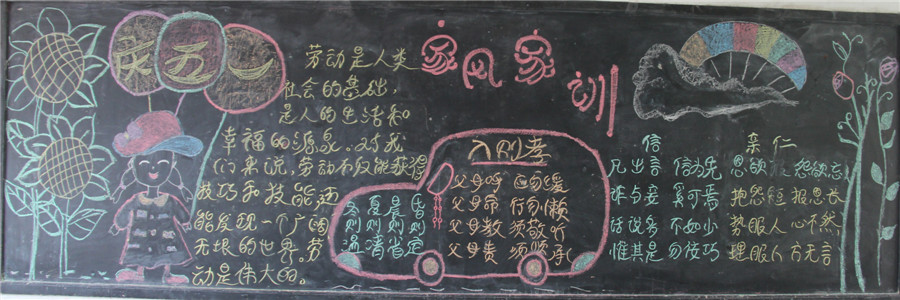 庆五一
家风家训
劳动是人类
社会的基础，
是人的生活和
幸福的源泉。对我
们来说，劳动不仅能获得
技巧和技能还
能发现一个广阔
无垠的世界。劳
动是伟大的。
入则孝
父母呼 应勿缓
父母命 行勿懒
父母教 须敬听
父母责 须顺承
冬夏晨昏
则则则则
温清省定
信
凡出言 信为先
诈与妄 奚可焉
话说多 不如少
惟其是 勿佞巧
亲仁
恩欲报 怨欲忘
抱怨短 报恩长
势服人 心不然
理服人 方无言